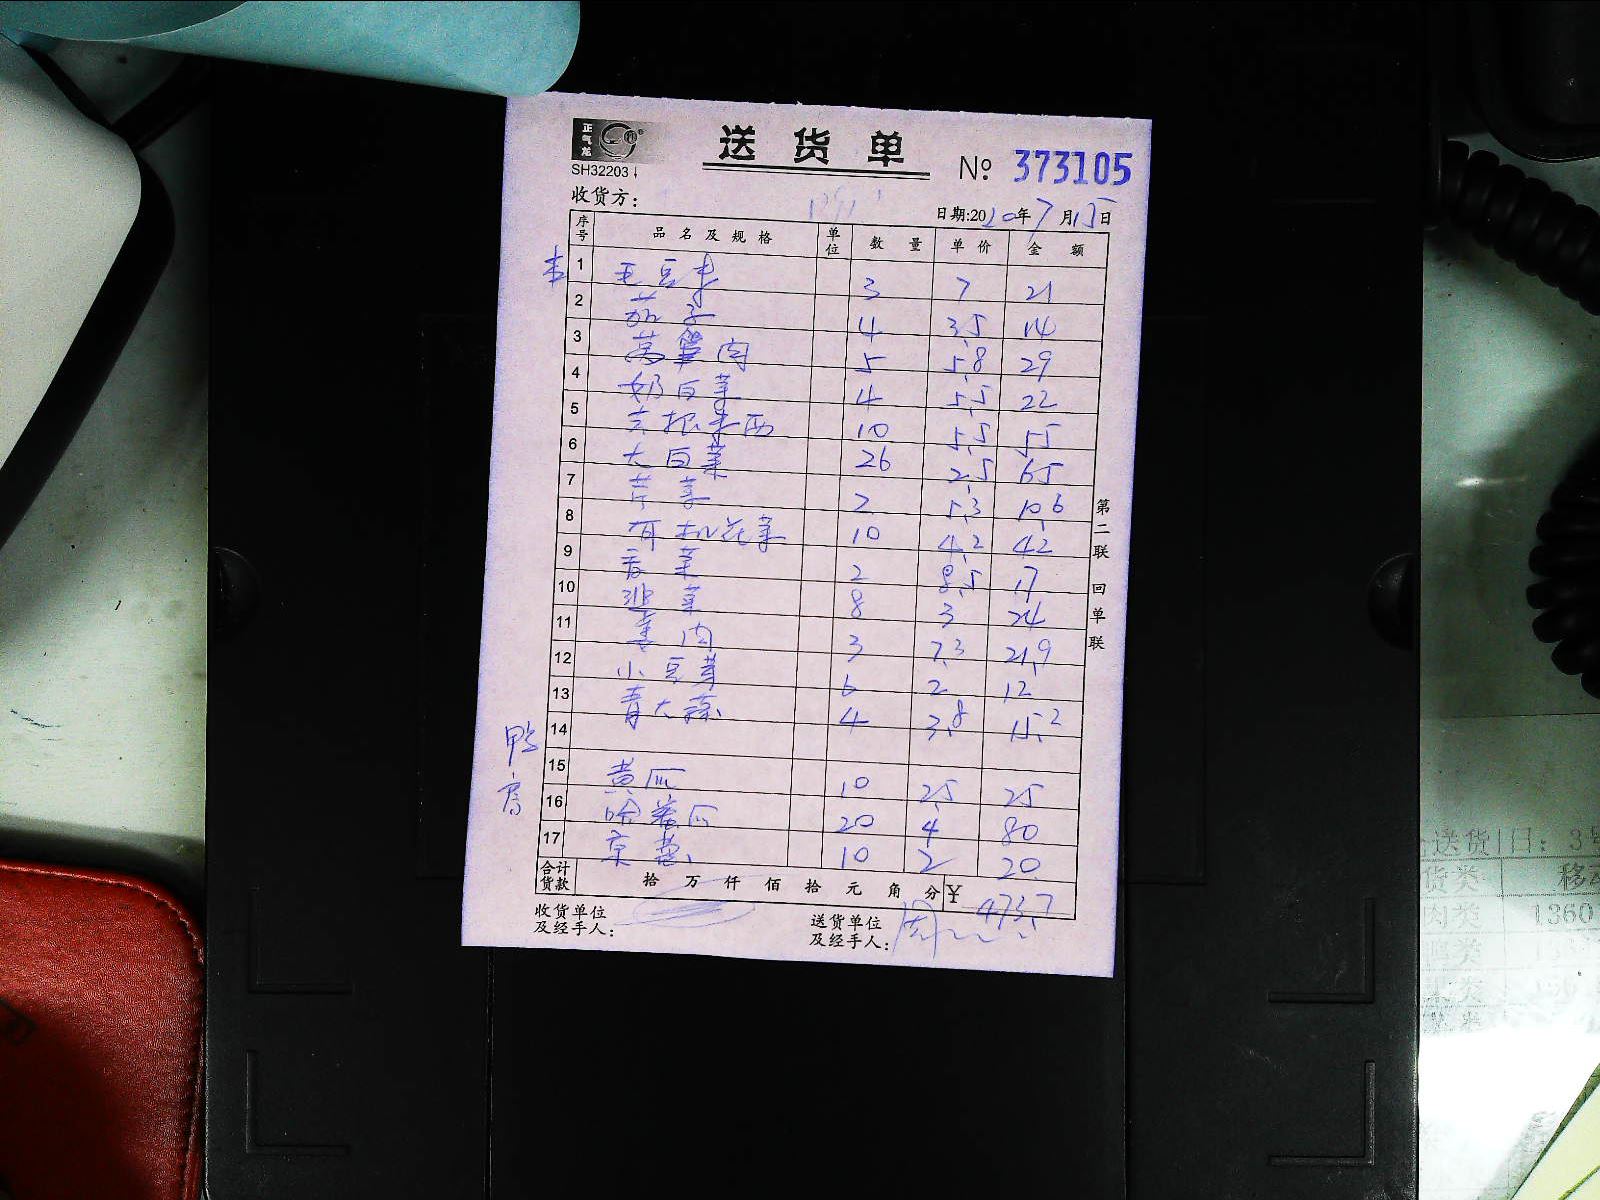 正气龙
SH32203
送货单
№ 373105
收货方:
日期:2020年7月15日
序号 品名及规格 单位 数量 单价 金额
本
1 毛豆米 3 7 21
2 茄子 4 3.5 14
3 莴笋肉 5 5.8 29
4 奶白菜 4 5.5 22
5 去根米西 10 5.5 55
6 大白菜 26 2.5 65
7 芹菜 2 5.3 10.6
8 有机花菜 10 4.2 42
9 香菜 2 8.5 17
10 韭菜 8 3 24
11 姜肉 3 7.3 21.9
12 小豆芽 6 2 12
13 青大蒜 4 3.8 15.2
14
15 黄瓜 10 2.5 25
16 哈密瓜 20 4 80
17 京葱 10 2 20
合计货款 拾 万 仟 佰 拾 元 角 分 ¥ 473.7
收货单位及经手人:
送货单位及经手人: 周
第二联 回单联
送货 日: 3号
货类
肉类 1360